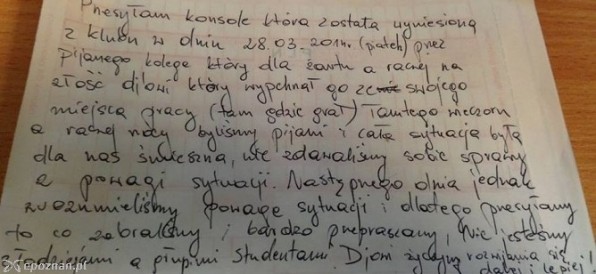 Przesyłam konsole która została wyniesioną
z klubu w dniu 28.03.2014r. (piątek) przez
pijanego kolege który dla żartu a raczej na
złość dj'owi który wypchnął go ze swojego
miejsca pracy (tam gdzie grał) Tamtego wieczoru
a raczej nocy byliśmy pijani i cała sytuacja była
dla nas śmieszna, nie zdawaliśmy sobie sprawy
z powagi sytuacji. Następnego dnia jednak
zrozumieliśmy powagę sytuacji i dlatego przesyłamy
to co zabraliśmy i bardzo przepraszamy, Nie jesteśmy
złodziejami a głupimi studentami. Djowi życzymy rozwijania się
i dalej lepiej!
epoznan.pl